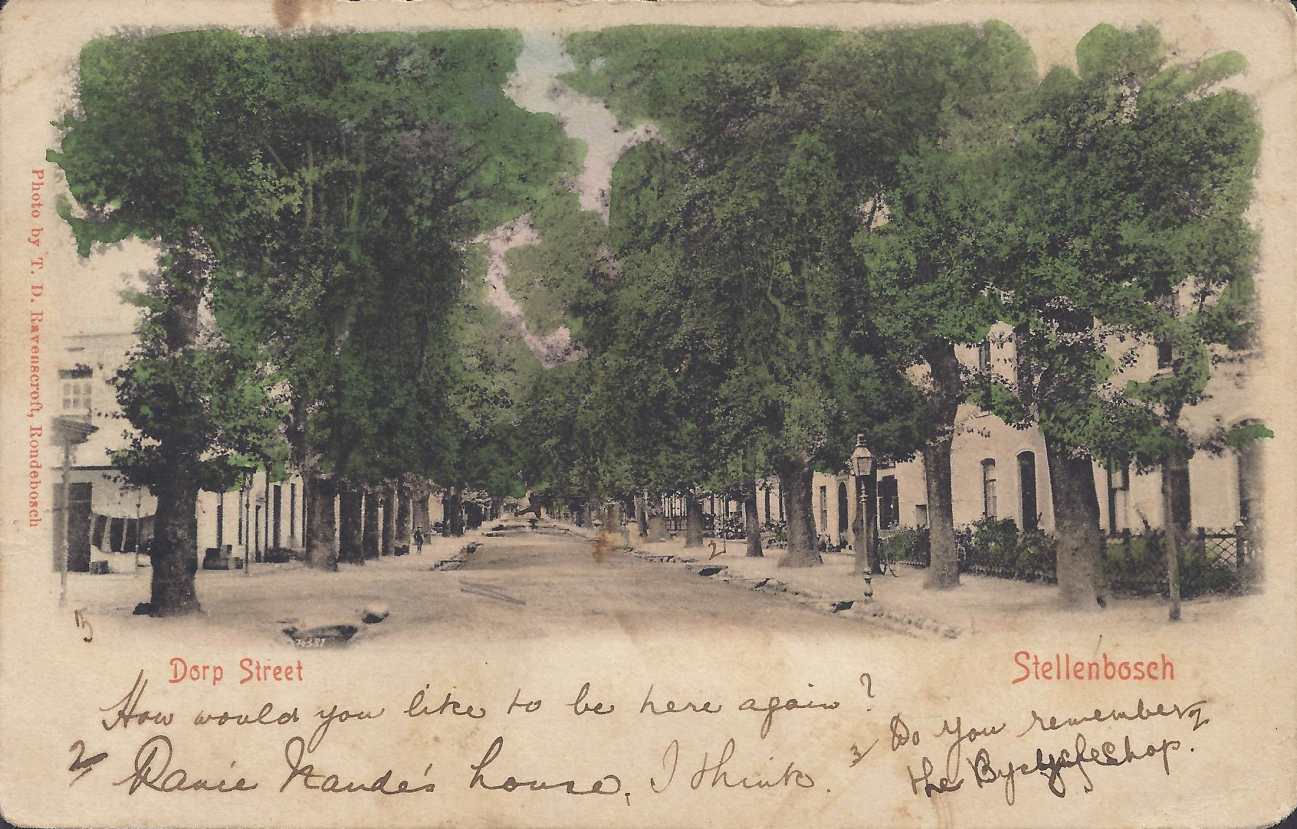 Photo by T. D. Ravenscroft, Rondebosch
2
5
74537
Dorp Street
Stellenbosch
How would you like to be here again?
2/ Danie Naude's house, I think.
3/ Do you remember
the Bycycle Shop.